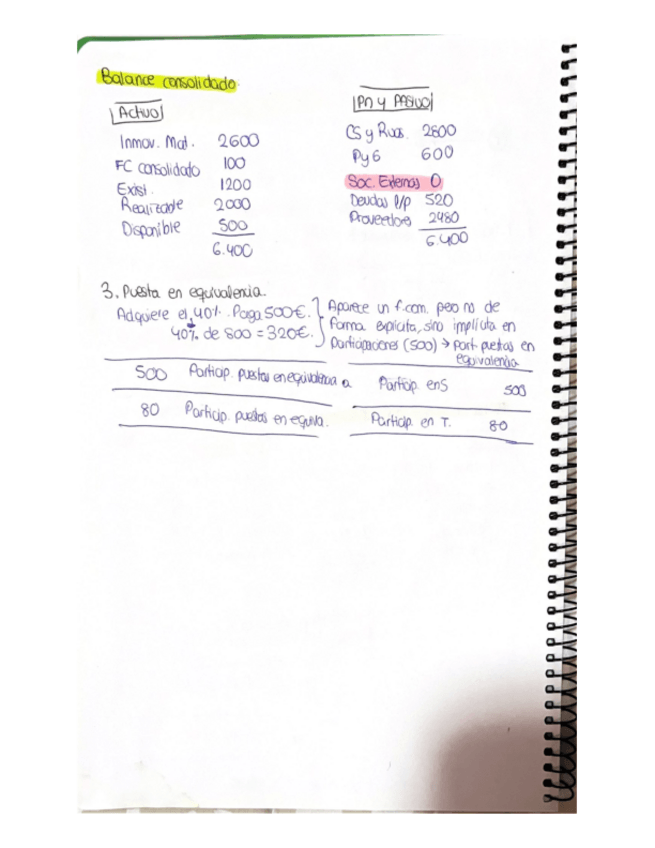 Balance consolidado.
Activo
Inmov. Mat. 2600
FC consolidado 100
Exist. 1200
Realizable 2000
Disponible 500
6.400
PN y PASIVO
CS y Rvas. 2800
PyG 600
Soc. Externos 0
Deudas l/p 520
Proveedores 2480
6.400
3. Puesta en equivalencia.
Adquiere el 40%. Paga 500€.
40% de 800 = 320€.
Aparece un f.com. pero no de
forma explícita, sino implícita en
Participaciones (500) → part. puestas en
equivalencia
500 Particip. puestas en equivalencia a Particip en S 500
80 Particip. puestas en equiva. Particip. en T. 80